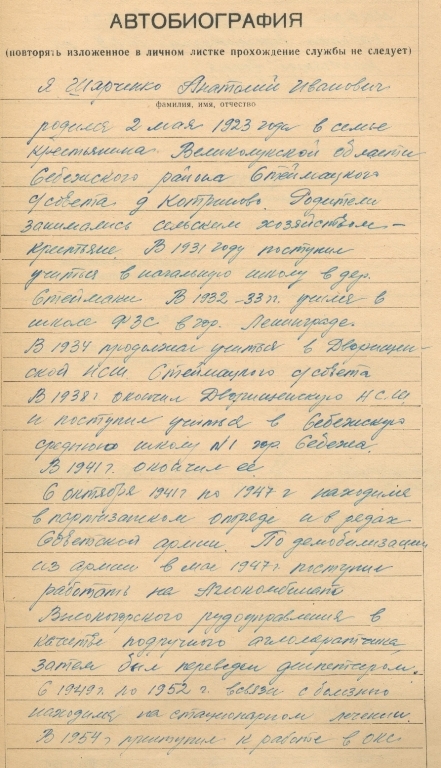 АВТОБИОГРАФИЯ
(повторять изложенное в личном листке прохождение службы не следует)
Я Шарченко Анатолий Иванович
фамилия, имя, отчество
родился 2 мая 1923 года в семье
крестьянина Великолукской области
Себежского района Стеймацкого
с/совета д Котриново. Родители
занимались сельским хозяйством –
крестьяне. В 1931 году поступил
учиться в начальную школу в дер.
Стеймаки В 1932-33 гг. учился в
школе ФЗС в гор. Ленинграде.
В 1934 продолжал учиться в Дворищен-
ской НСШ Стеймацкого с/совета
В 1938 г окончил Дворищенскую НСШ
и поступил учиться в Себежскую
среднюю школу №1 гор Себежа.
В 1941 г. окончил её
С октября 1941 г по 1947 г находился
в партизанском отряде и в рядах
Советской армии. По демобилизации
из армии в мае 1947 г. поступил
работать на Аглокомбинат
Высокогорского рудоуправления в
качестве подручного аглоаппаратчика,
затем был переведен диспетчером.
С 1949 г. по 1952 г. в связи с болезнью
находился на стационарном лечении.
В 1954 г приступил к работе в ОКС